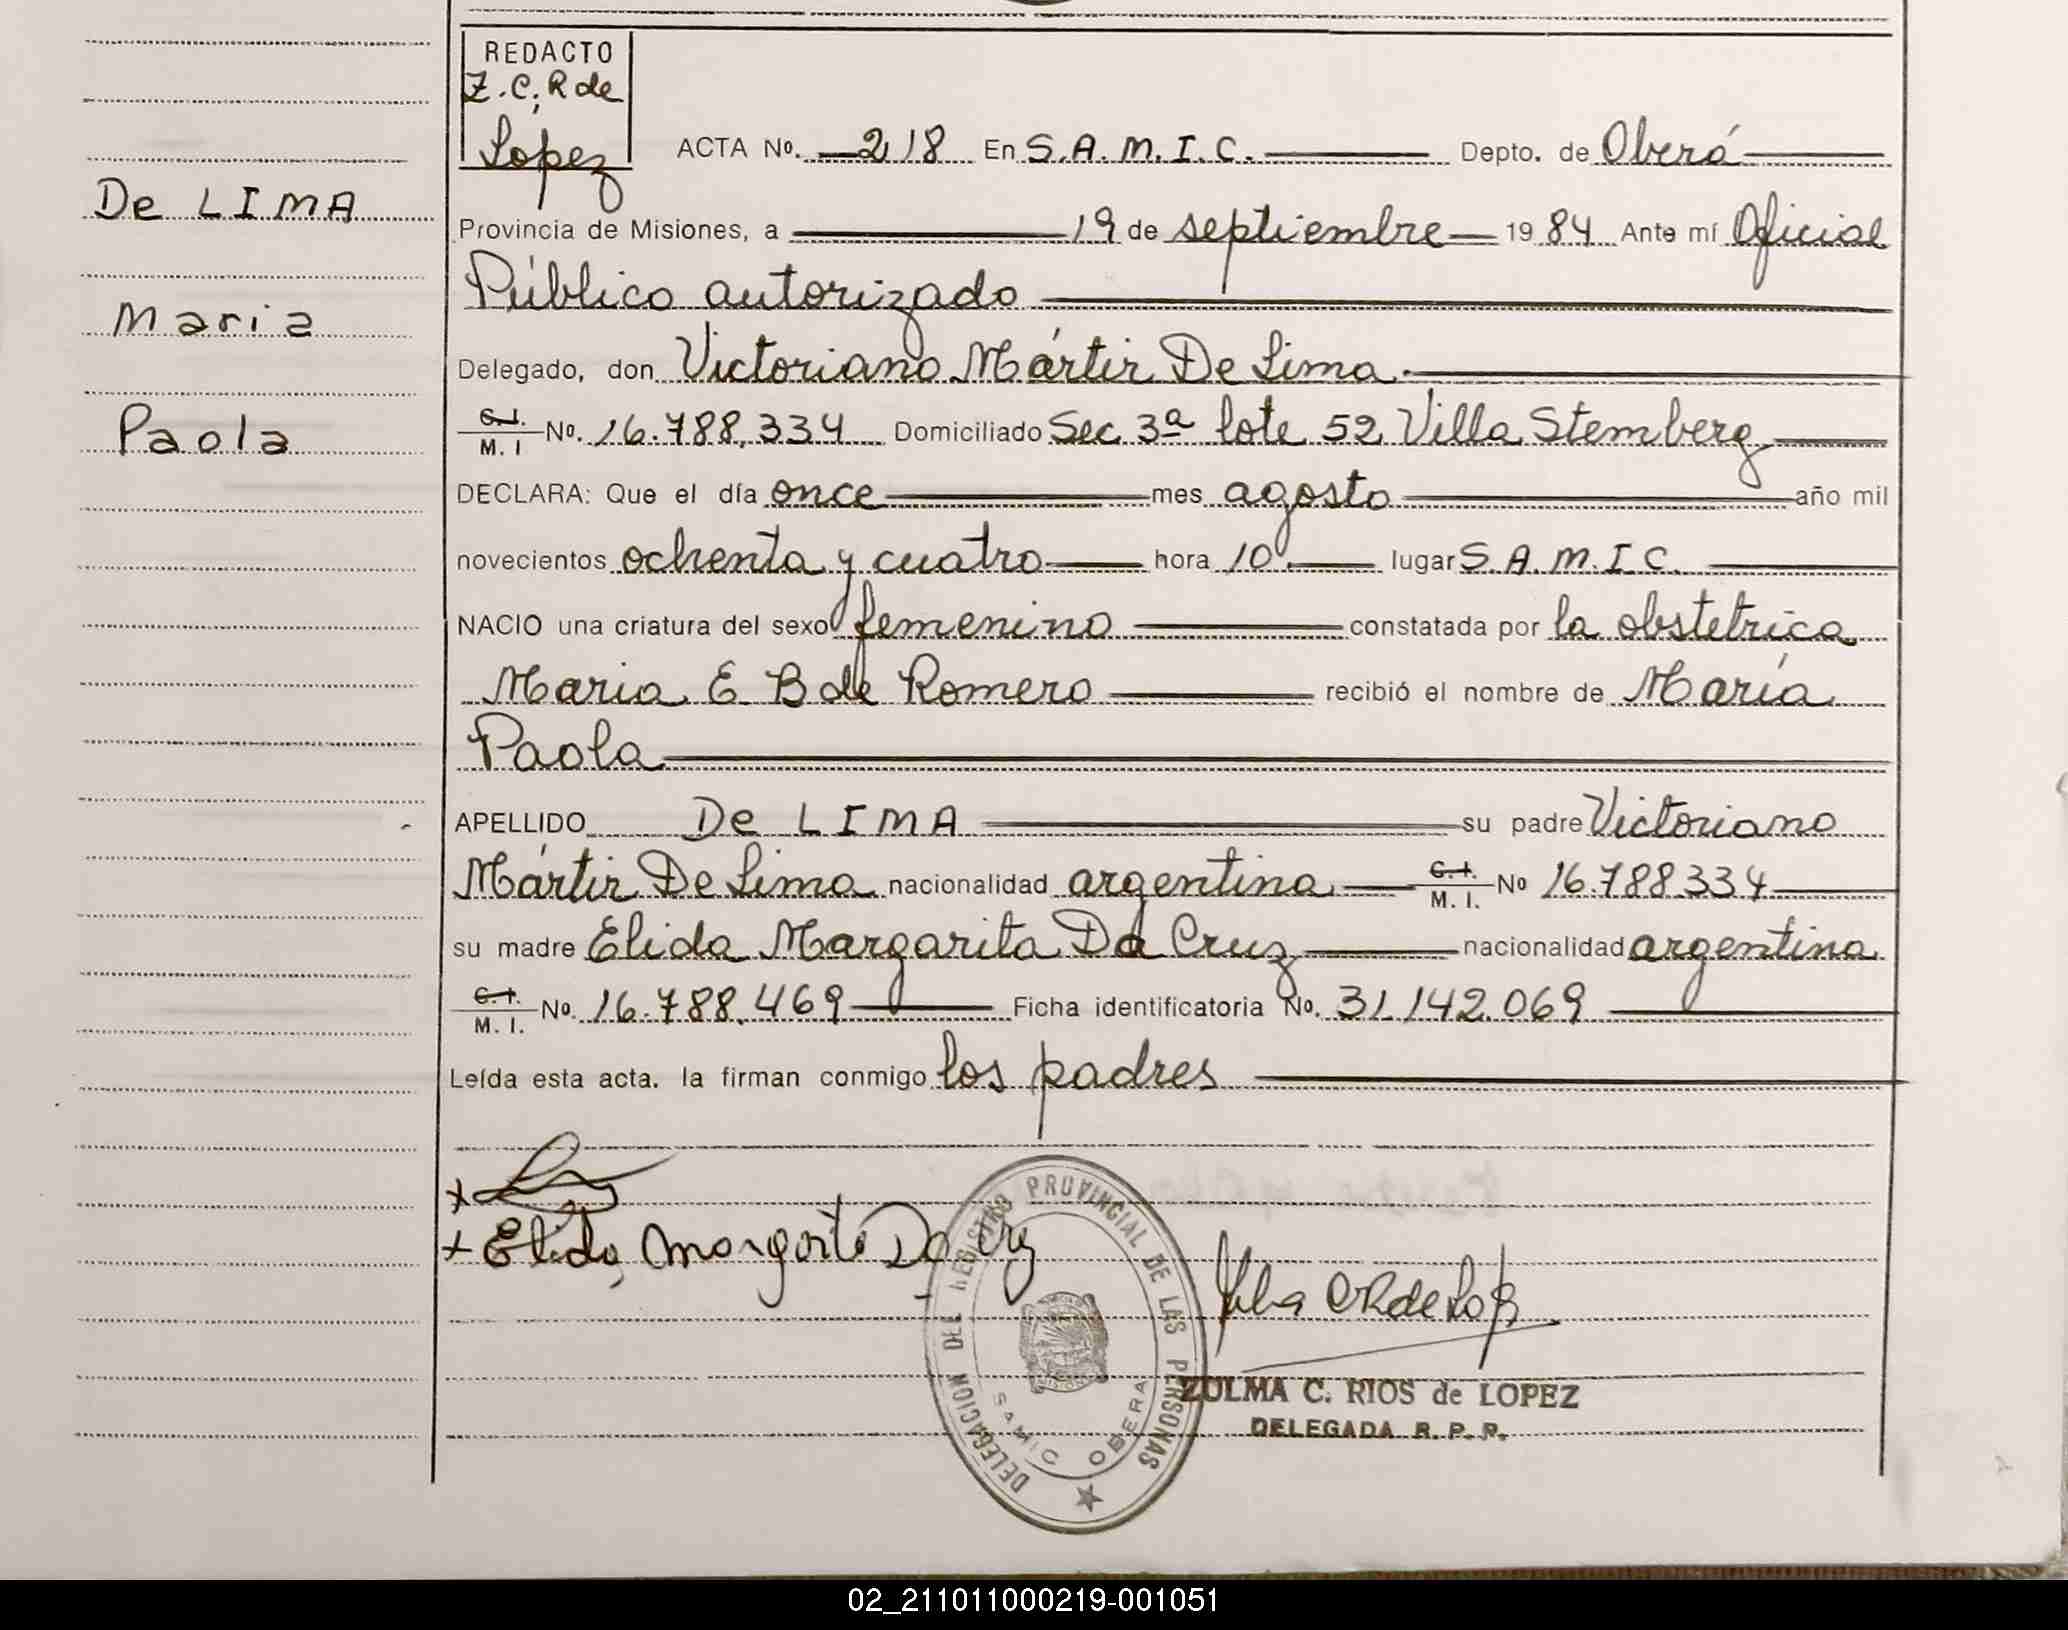 REDACTO
Z.C. R de
Lopez
ACTA No. 218 En S.A.M.I.C. Depto. de Oberá
De LIMA
Provincia de Misiones, a 19 de septiembre 19 84 Ante mí Oficial
Público autorizado
Maria
Delegado, don Victoriano Mártir De Lima.
Paola
C.I. M. I No. 16.788.334 Domiciliado Sec 3ª lote 52 Villa Stemberg
DECLARA: Que el día once mes agosto año mil
novecientos ochenta y cuatro hora 10 lugar S.A.M.I.C.
NACIO una criatura del sexo femenino constatada por la obstetrica
Maria E B de Romero recibió el nombre de María
Paola
APELLIDO De LIMA su padre Victoriano
Mártir De Lima nacionalidad argentina C.I. M. I. No 16.788.334
su madre Elida Margarita Da Cruz nacionalidad argentina
C.I. M. I. No. 16.788.469 Ficha identificatoria No. 31.142.069
Leída esta acta. la firman conmigo los padres
x
x Elida Margarita Da Cruz
DELEGACION DEL REGISTRO PROVINCIAL DE LAS PERSONAS
SAMIC OBERA
ZULMA C. RIOS de LOPEZ
DELEGADA R. P. P.
02_211011000219-001051